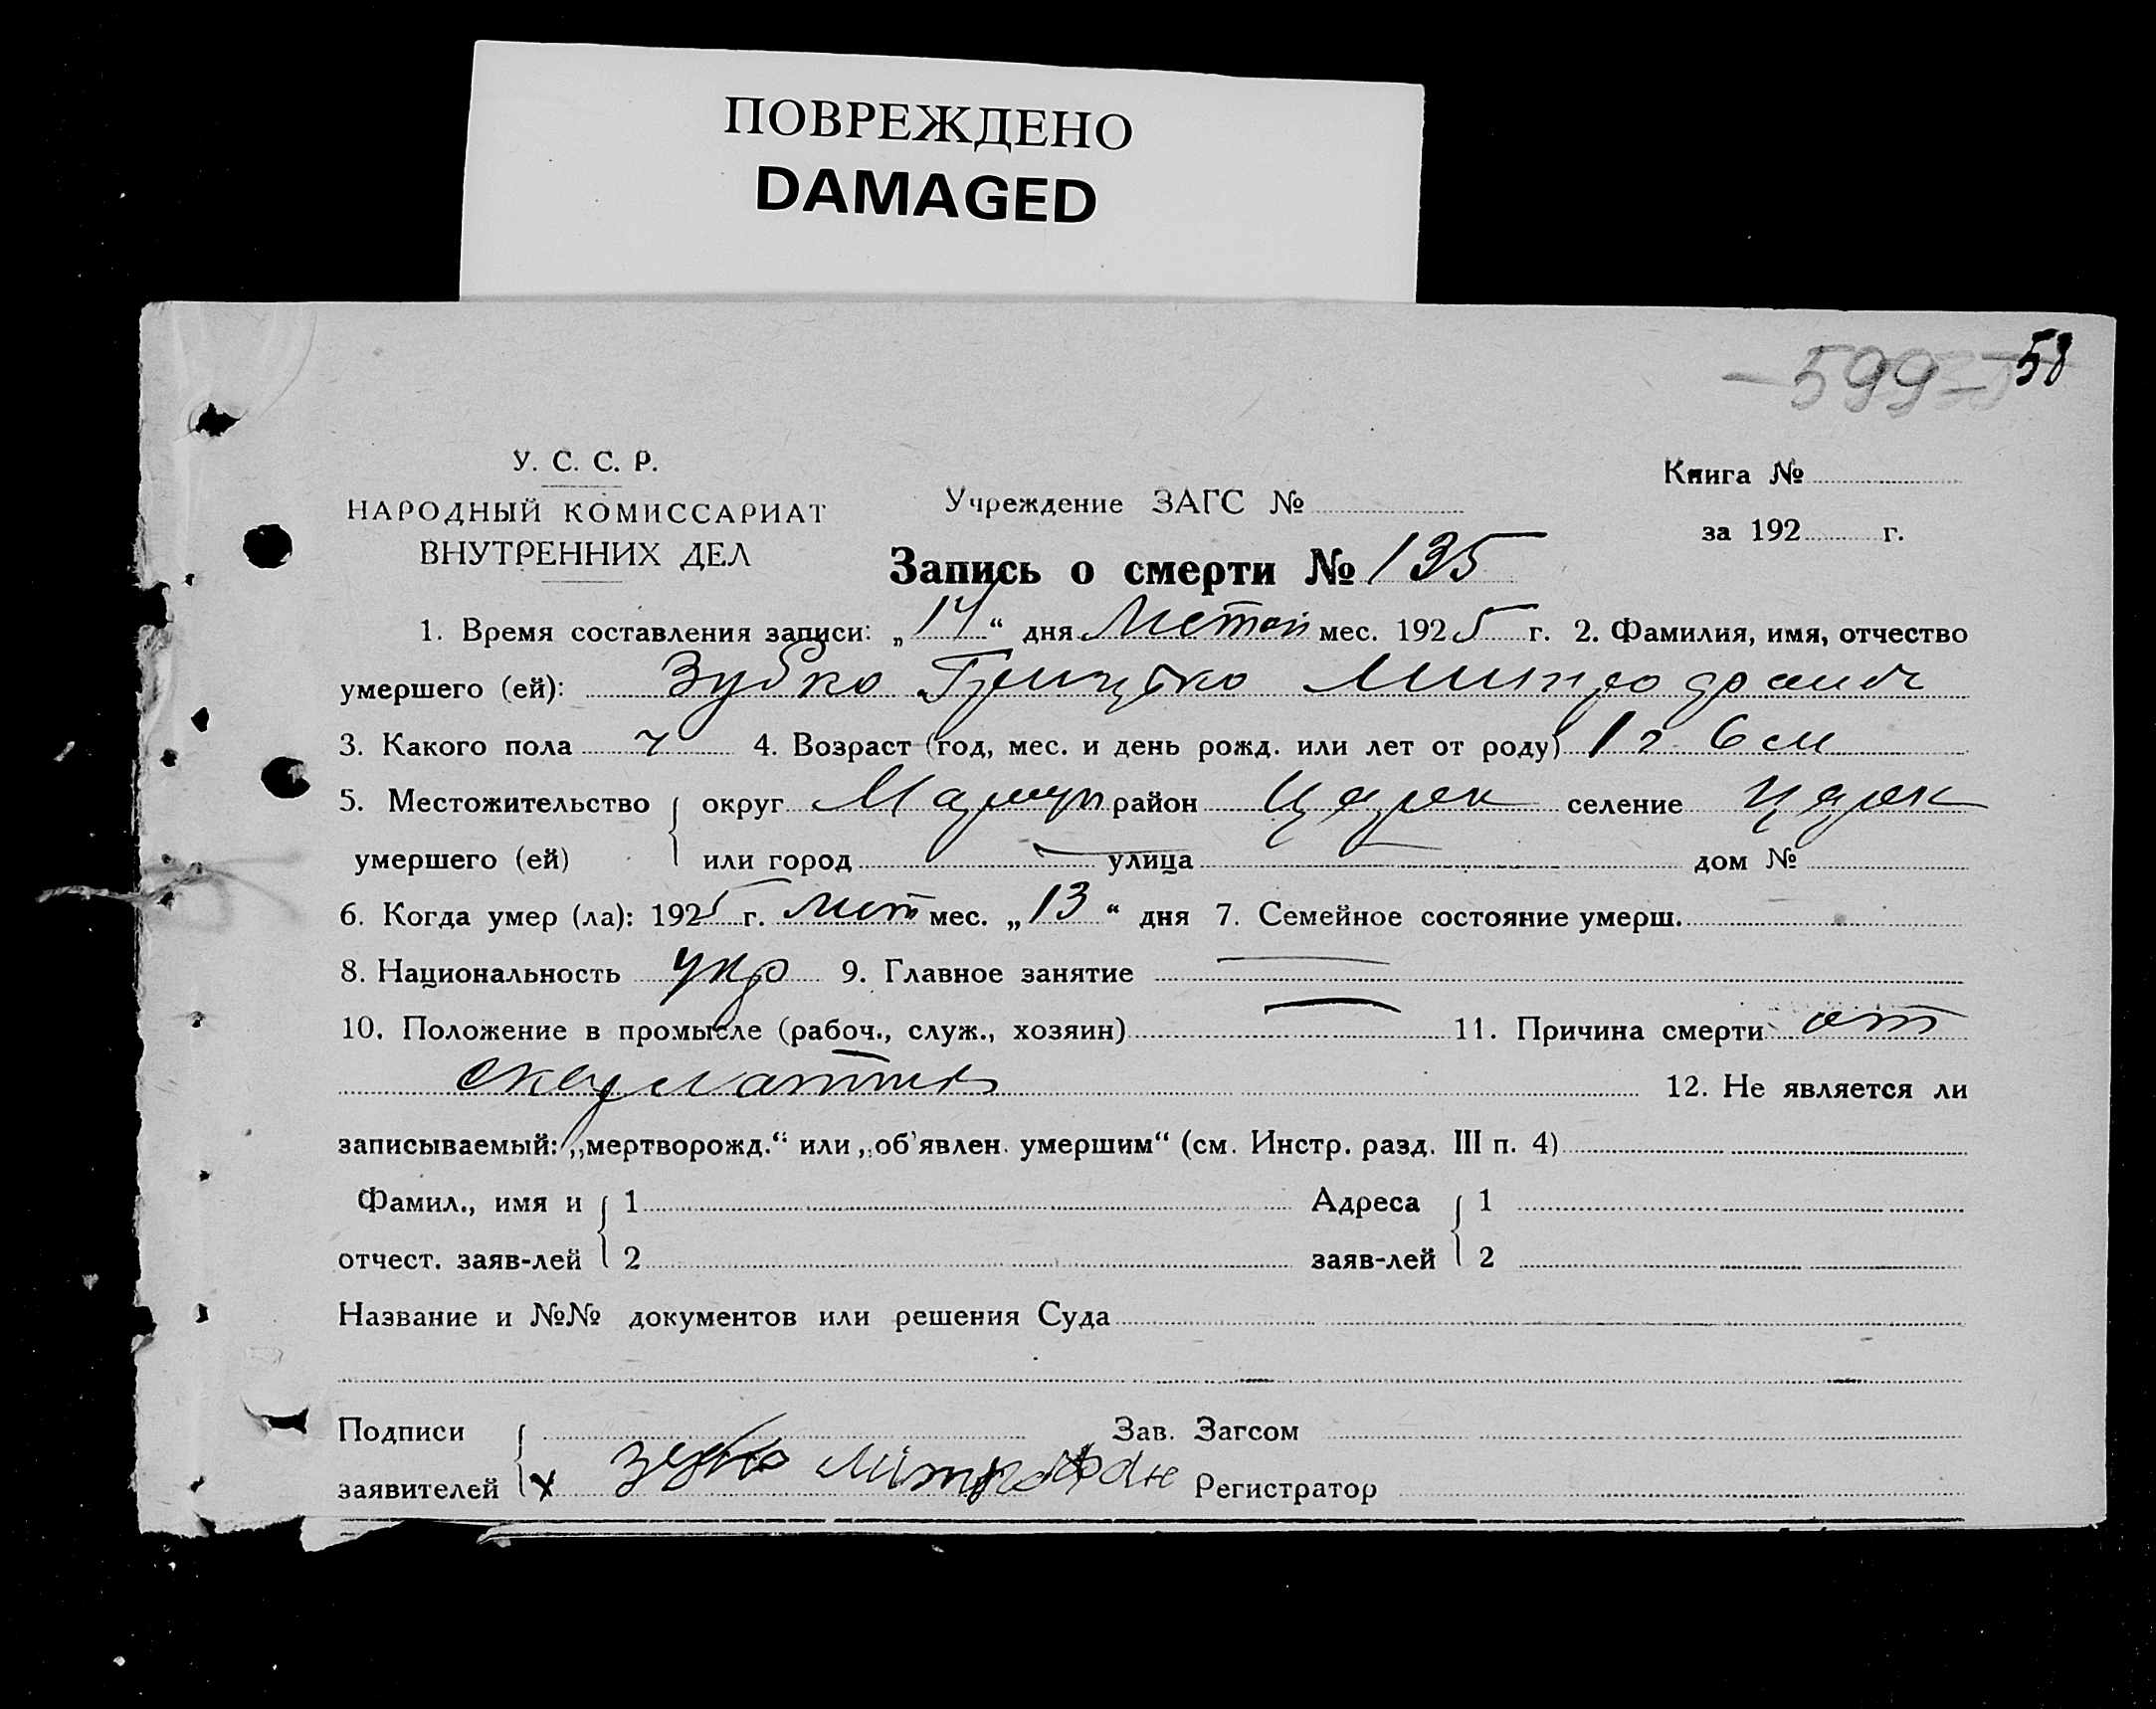 ПОВРЕЖДЕНО
DAMAGED
-599- 58
У. С. С. Р.
НАРОДНЫЙ КОМИССАРИАТ
ВНУТРЕННИХ ДЕЛ
Учреждение ЗАГС №
Книга №
за 192 г.
Запись о смерти № 135
1. Время составления записи: „14“ дня мес. 1925 г. 2. Фамилия, имя, отчество
умершего (ей): Зубко Грицько
3. Какого пола ч 4. Возраст (год, мес. и день рожд. или лет от роду) 1 г 6 м
5. Местожительство округ Мариуп район Царек селение Царек
умершего (ей) или город улица дом №
6. Когда умер (ла): 1925 г. мес. „13“ дня 7. Семейное состояние умерш.
8. Национальность укр 9. Главное занятие —
10. Положение в промысле (рабоч., служ., хозяин) — 11. Причина смерти от
12. Не является ли
записываемый: „мертворожд.“ или „об’явлен. умершим“ (см. Инстр. разд. III п. 4)
Фамил., имя и 1 Адреса 1
отчест. заяв-лей 2 заяв-лей 2
Название и №№ документов или решения Суда
Подписи Зав. Загсом
заявителей х Зубко Мітрофан Регистратор